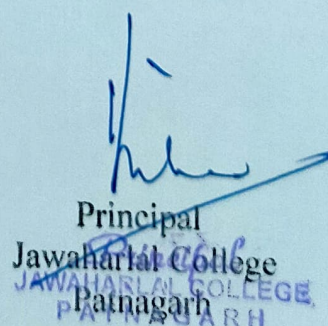 Principal
Jawaharlal College
Patnagarh
Principal
JAWAHARLAL COLLEGE,
PATNAGARH